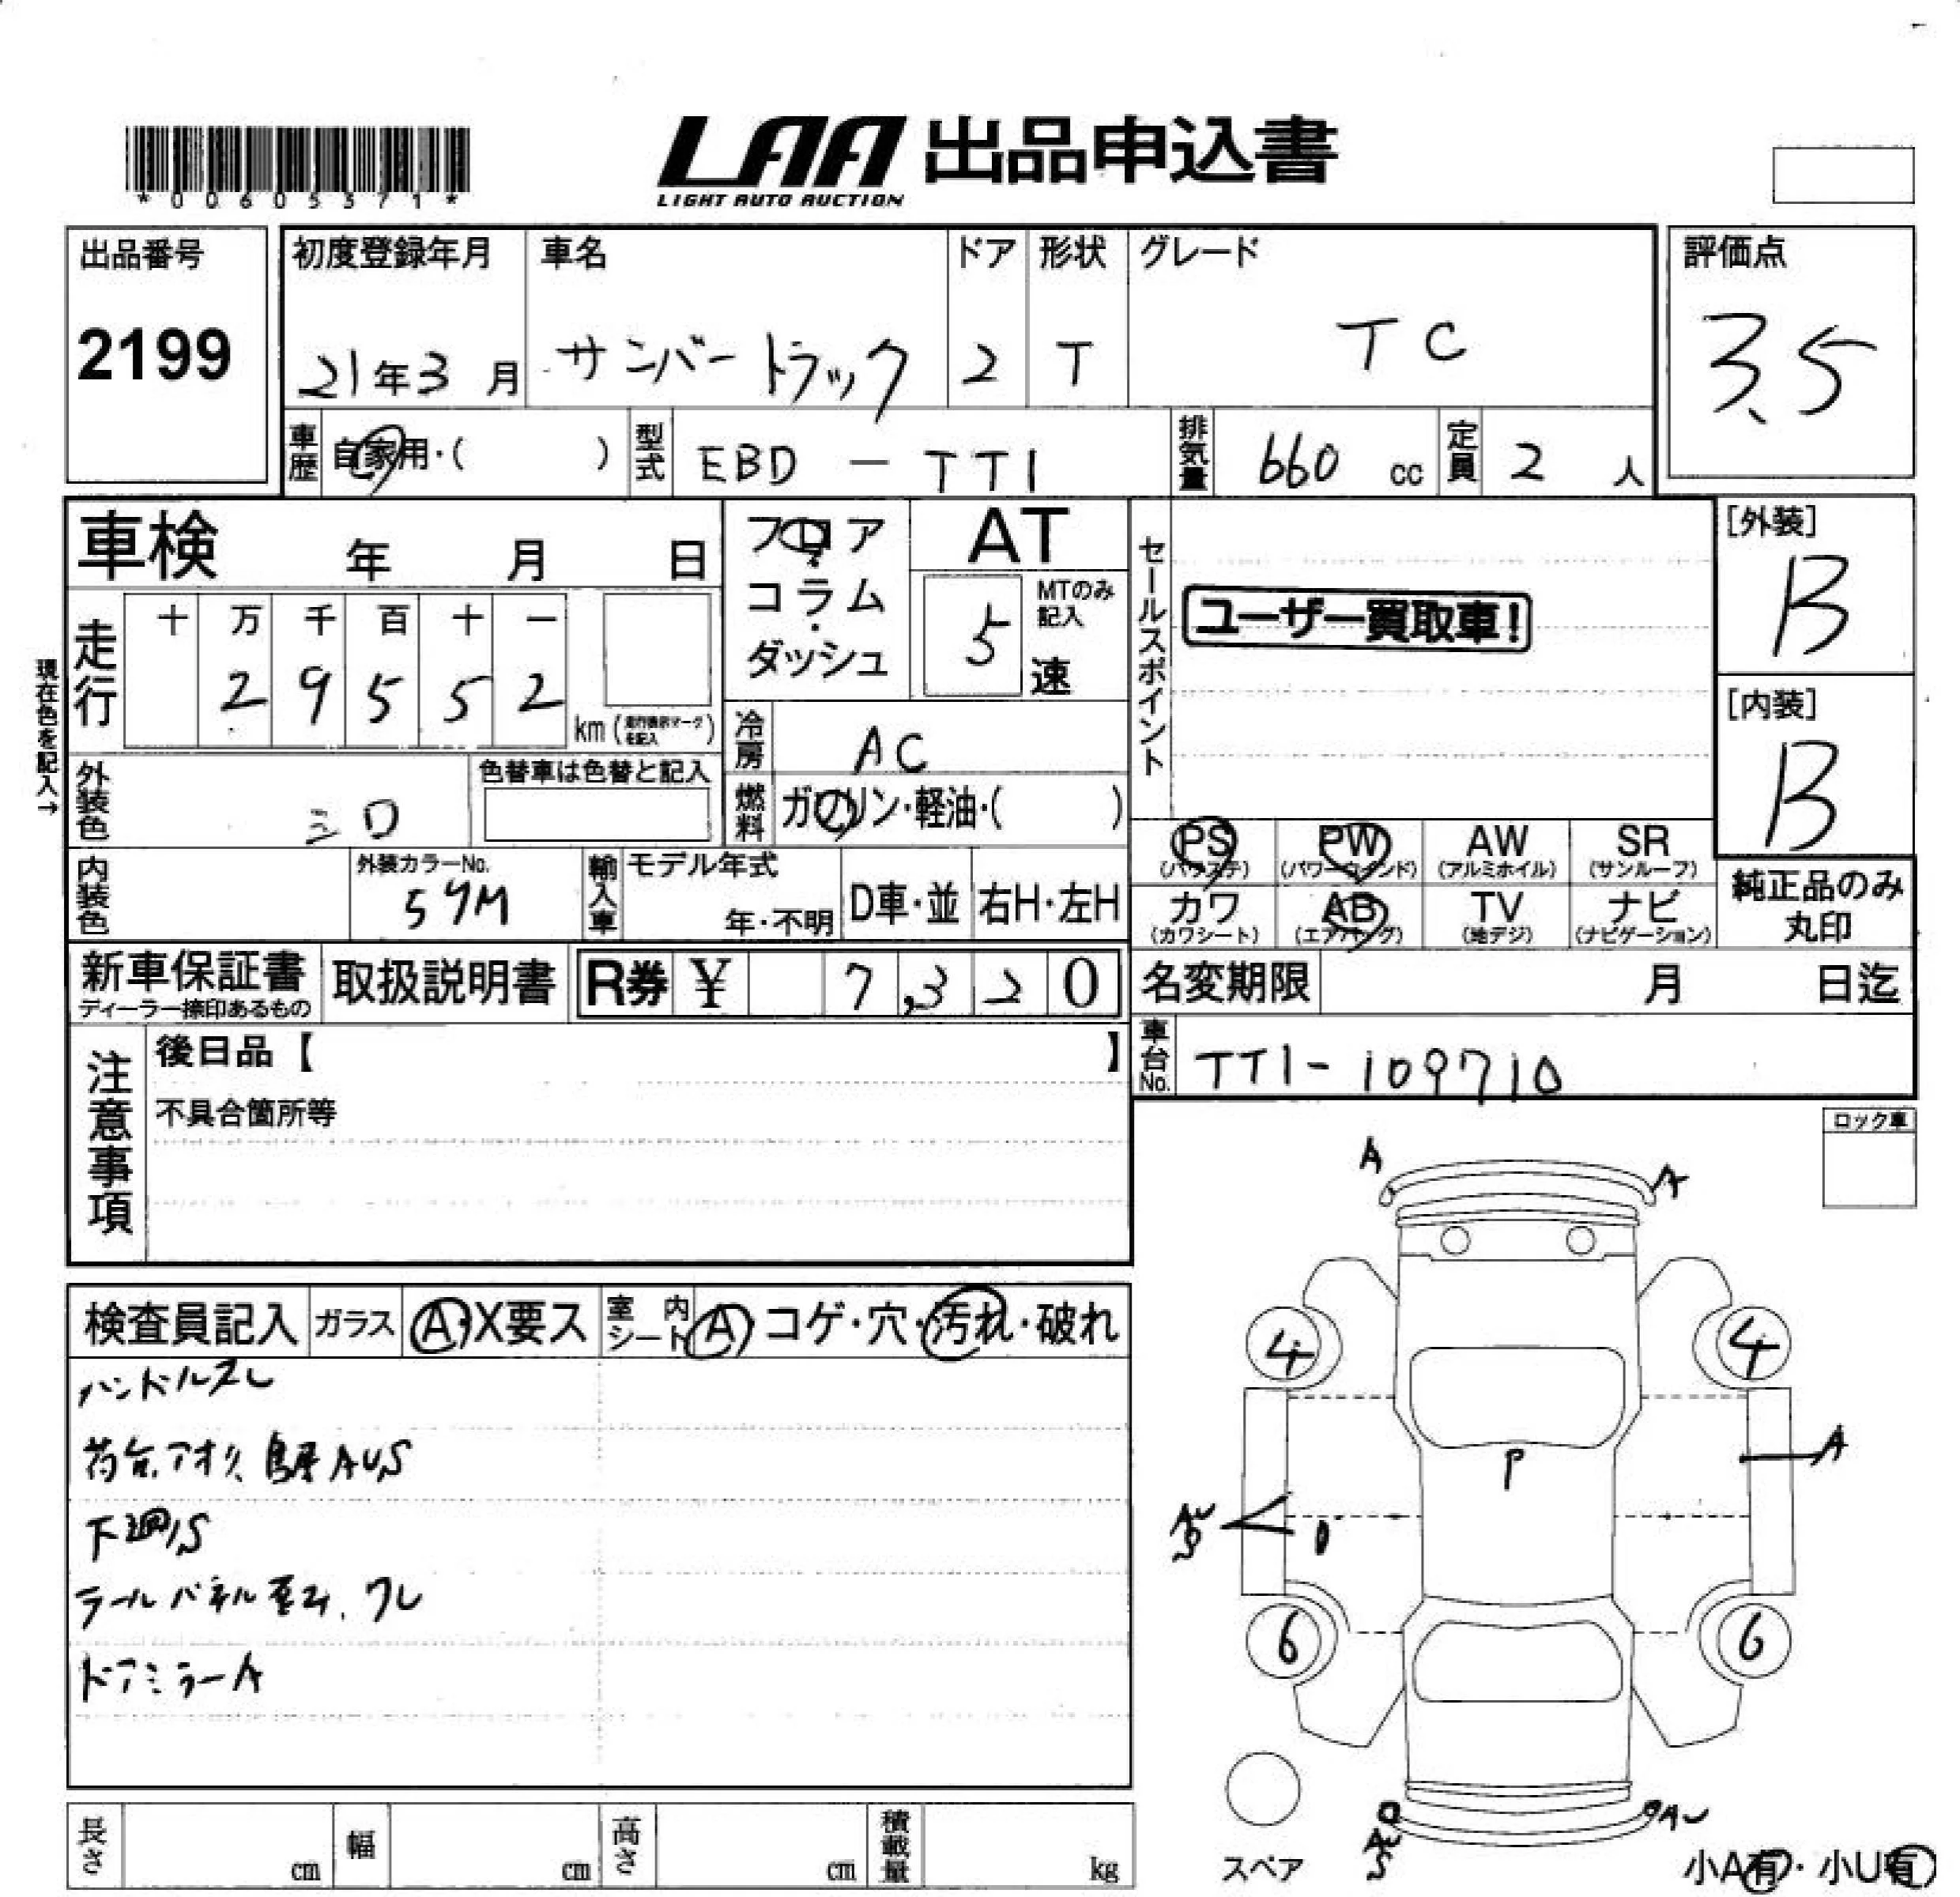 *00605371*
LAA 出品申込書
LIGHT AUTO AUCTION
出品番号 初度登録年月 車名 ドア 形状 グレード 評価点
2199 21年3月 サンバートラック 2 T TC 3.5
車歴 自家用・( ) 型式 EBD-TT1 排気量 660 cc 定員 2 人
車検 年 月 日 フロア・コラム・ダッシュ AT 5速 MTのみ記入
セールスポイント
ユーザー買取車!
[外装] B
走行 十 万 千 百 十 一
2 9 5 5 2 km (走行表示マークを記入)
[内装] B
現在色を記入→
冷房 AC
外装色 シロ 色替車は色替と記入
燃料 ガソリン・軽油・( )
PS (パワステ) PW (パワーウインド) AW (アルミホイル) SR (サンルーフ)
内装色 外装カラーNo. 輸入車 モデル年式 年・不明 D車・並 右H・左H
カワ (カワシート) AB (エアバッグ) TV (地デジ) ナビ (ナビゲーション)
純正品のみ丸印
新車保証書 ディーラー捺印あるもの 取扱説明書 R券 ¥ 7,320
名変期限 月 日迄
車台No. TT1-109710
注意事項
後日品【 】
不具合箇所等
ロック車
検査員記入 ガラス A・X要ス 室内シート A・コゲ・穴・汚れ・破れ
ハンドルスレ
荷台アオリ、鳥居AUS
下廻リS
テールパネル歪み、ワレ
ドアミラーA
A A
4 4
A
P
AU
S
6 6
AU
AU
S
スペア
小A有・小U有
長さ cm 幅 cm 高さ cm 積載量 kg